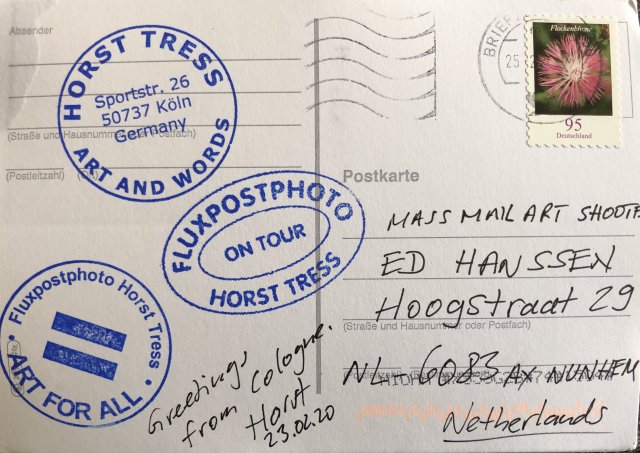 Absender
HORST TRESS
Sportstr. 26
50737 Köln
Germany
ART AND WORDS
(Straße und Hausnummer oder Postfach)
(Postleitzahl)
FLUXPOSTPHOTO
ON TOUR
HORST TRESS
Fluxpostphoto Horst Tress
ART FOR ALL
Greetings
from Cologne.
Horst
23.02.20
BRIEF
25
Flockenblume
95
Deutschland
Postkarte
MASS MAIL ART
ED HANSSEN
Hoogstraat 29
(Straße und Hausnummer oder Postfach)
NL 6083 AX NUNHEM
Netherlands